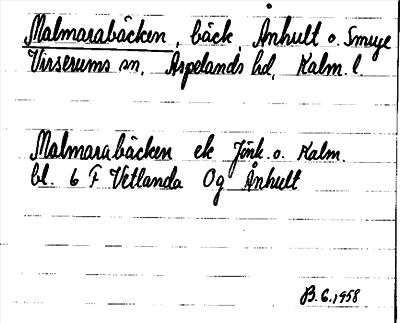 Malmarabäcken, bäck, Ånhult o. Smuge
Virserums sn, Aspelands hd, Kalm. l.
Malmarabäcken ek Jönk. o. Kalm.
bl. 6 F Vetlanda Og Ånhult
B. 6. 1958